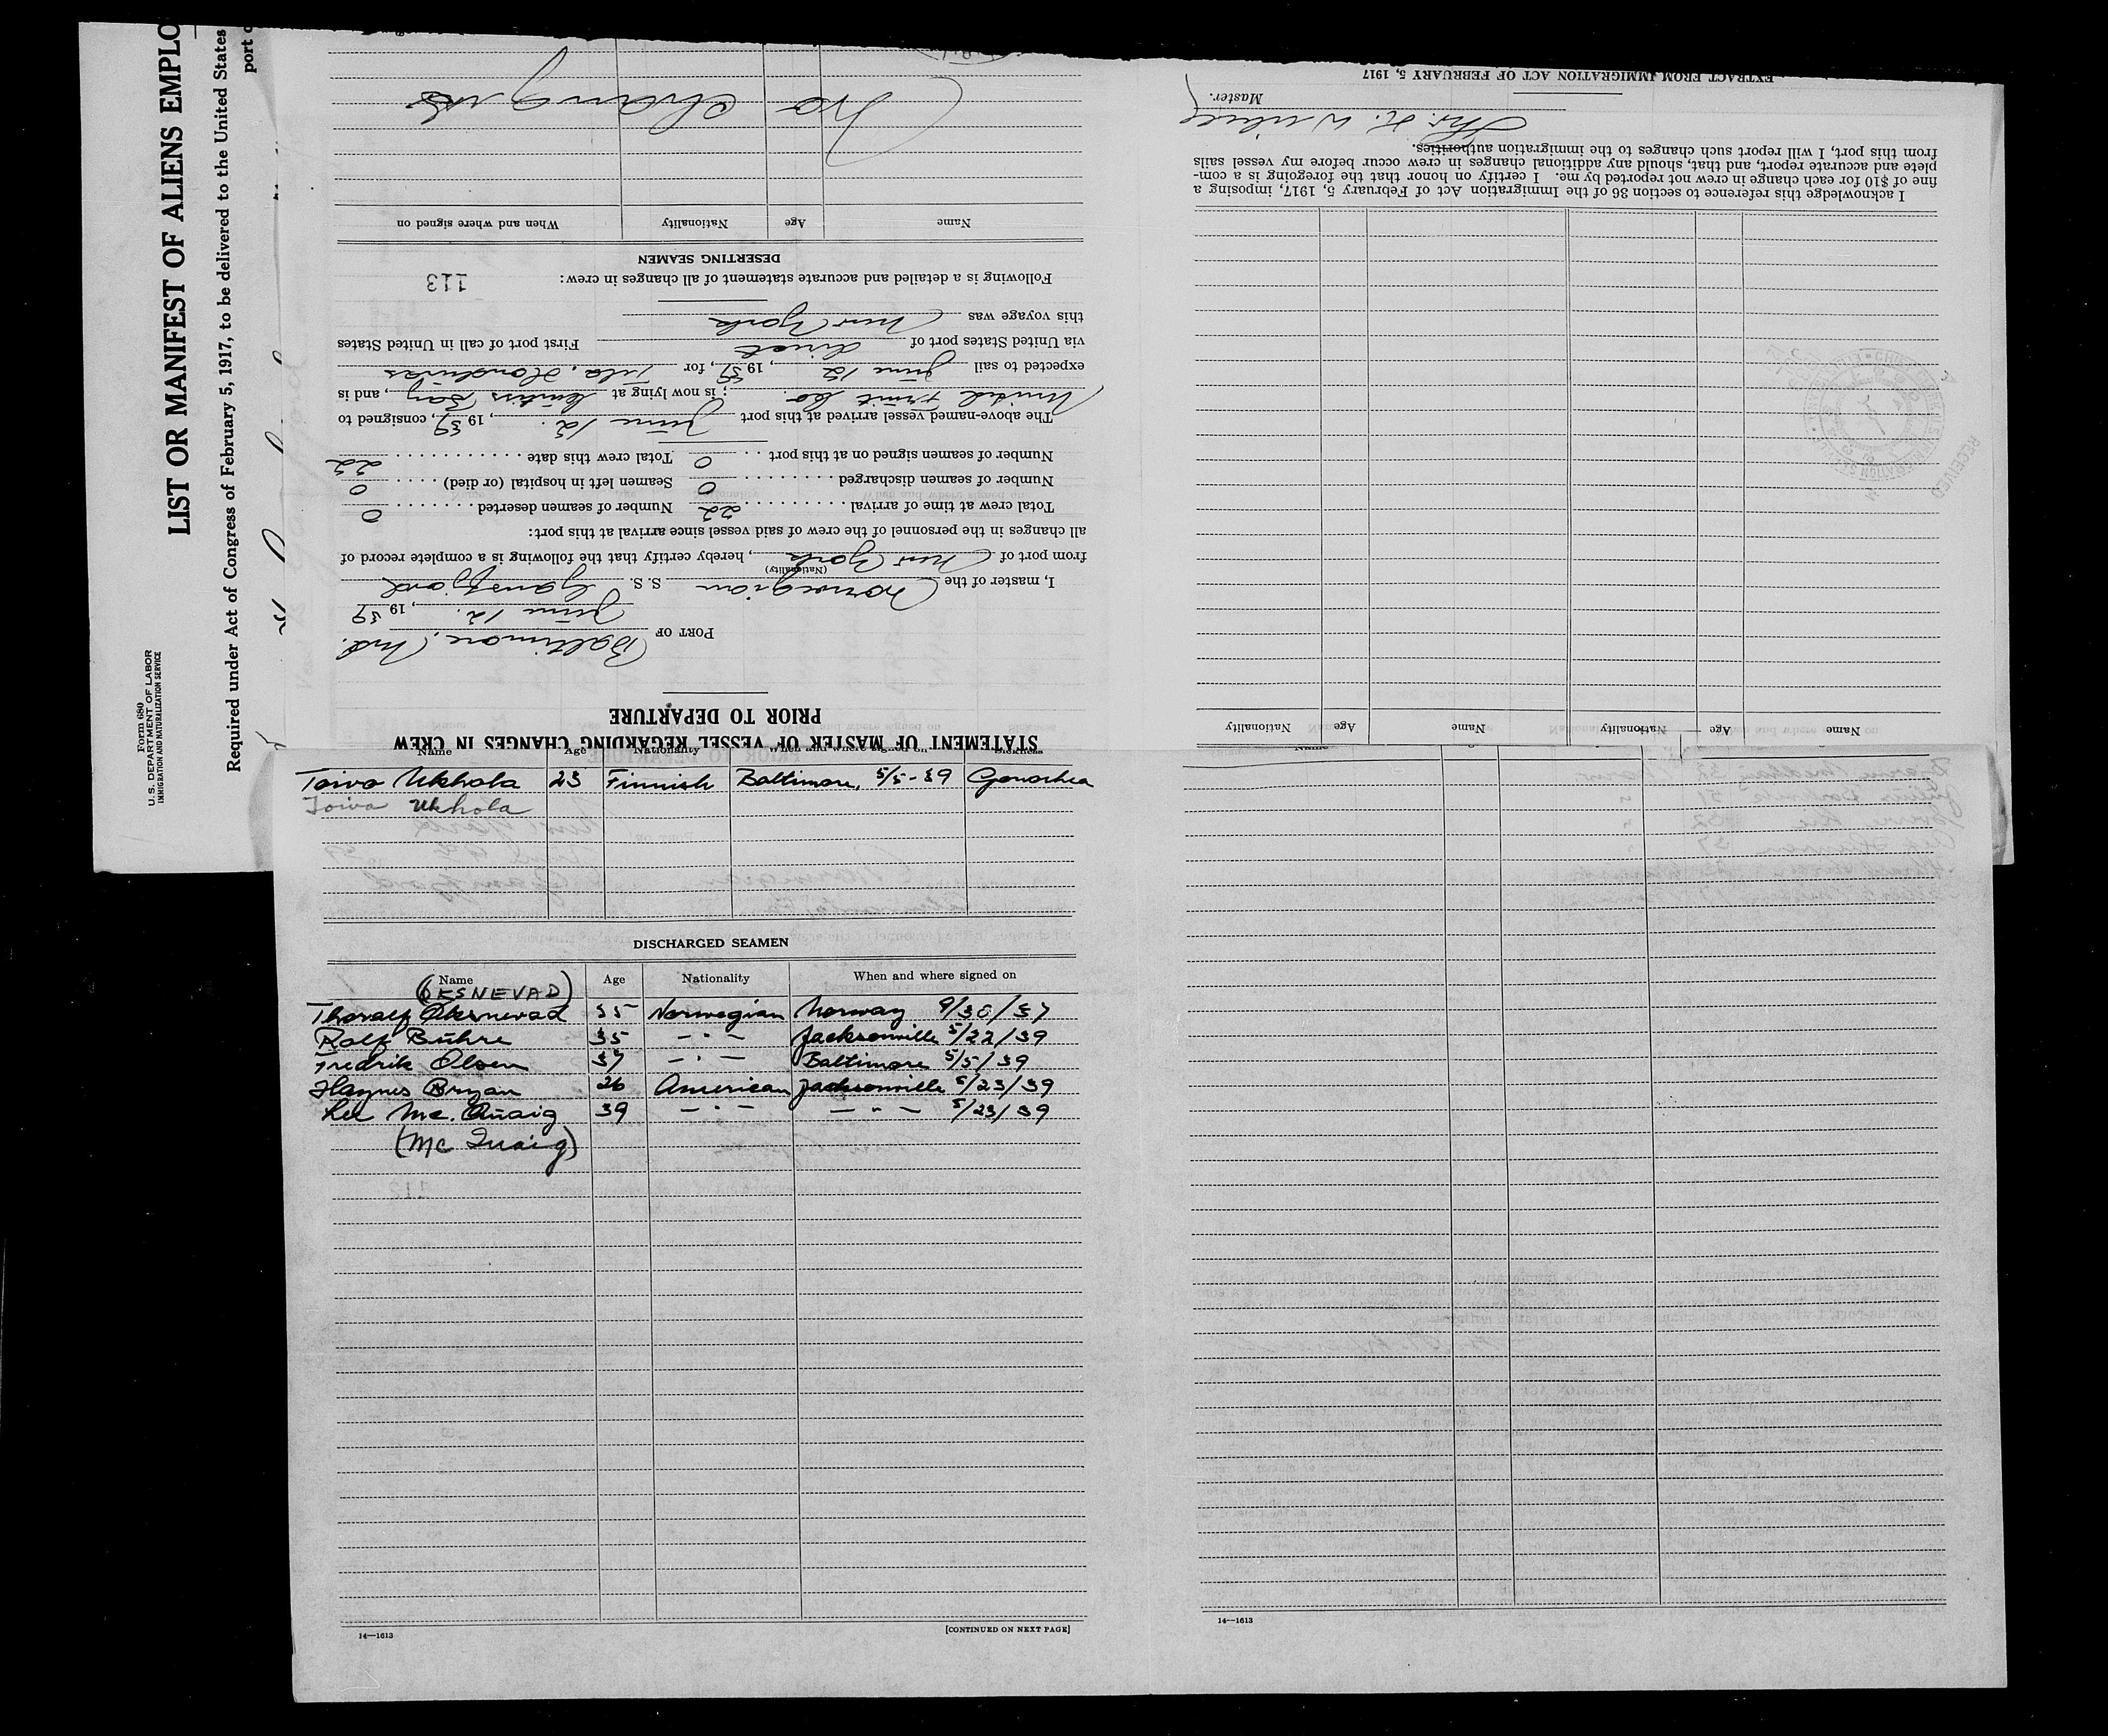 LIST OR MANIFEST OF ALIENS EMPLO
Required under Act of Congress of February 5, 1917, to be delivered to the United States
port
Form 680
U. S. DEPARTMENT OF LABOR
IMMIGRATION AND NATURALIZATION SERVICE
STATEMENT OF MASTER OF VESSEL REGARDING CHANGES IN CREW
PRIOR TO DEPARTURE
PORT OF Baltimore, Md.
June 12., 1939
I, master of the Norwegian S. S. Gansfjord
(Nationality)
from port of New York, hereby certify that the following is a complete record of
all changes in the personnel of the crew of said vessel since arrival at this port:
Total crew at time of arrival 22 Number of seamen deserted 0
Number of seamen discharged 0 Seamen left in hospital (or died) 0
Number of seamen signed on at this port 0 Total crew this date 22
The above-named vessel arrived at this port June 12., 1939, consigned to
United Fruit Co.; is now lying at Curtis Bay, and is
expected to sail June 12, 1939, for Tela, Honduras
via United States port of direct First port of call in United States
this voyage was New York
Following is a detailed and accurate statement of all changes in crew: 113
DESERTING SEAMEN
Name Age Nationality When and where signed on
No changes
Name Age Nationality Name Age Nationality
I acknowledge this reference to section 36 of the Immigration Act of February 5, 1917, imposing a
fine of $10 for each change in crew not reported by me. I certify on honor that the foregoing is a com-
plete and accurate report, and that, should any additional changes in crew occur before my vessel sails
from this port, I will report such changes to the immigration authorities.
Master.
EXTRACT FROM IMMIGRATION ACT OF FEBRUARY 5, 1917
RECEIVED
Name Age Nationality When and where signed on Sickness
Toivo Ukkola 23 Finnish Baltimore, 5/5-39 Gonorhea
Toivo Ukkola
DISCHARGED SEAMEN
Name Age Nationality When and where signed on
(OKSNEVAD)
Thoralf Oksnevad 35 Norwegian Norway 9/30/37
Rolf Bühre 35 — " — Jacksonville 5/22/39
Fredrik Olsen 37 — " — Baltimore 5/5/39
Haynes Bryan 26 American Jacksonville 5/23/39
Lee Mc. Quaig 39 — " — — " — 5/23/39
(Mc Quaig)
14—1613
[CONTINUED ON NEXT PAGE]
14—1613